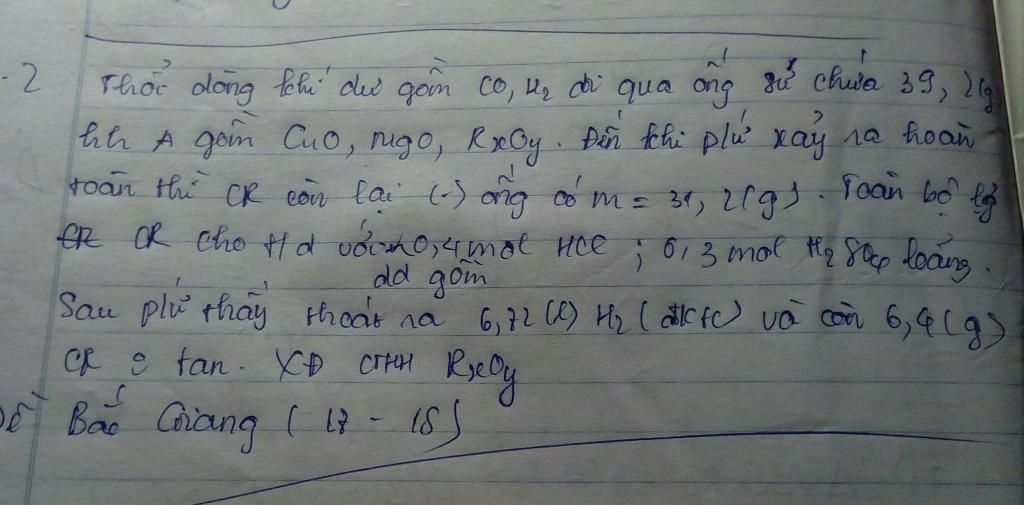 .2 Thổi dòng khí dư gồm CO, H2 đi qua ống sứ chứa 39,2(g)
hh A gồm CuO, MgO, RxOy. Đến khi pứ xảy ra hoàn
toàn thì CR còn lại (-) ống có m = 31,2(g). Toàn bộ lg
CR cho t/d với 0,4 mol HCl ; 0,3 mol H2SO4 loãng.
dd gồm
Sau pứ thấy thoát ra 6,72(l) H2 (đktc) và còn 6,4(g)
CR o tan. XĐ CTHH RxOy
Đề Bắc Giang (17 - 18)